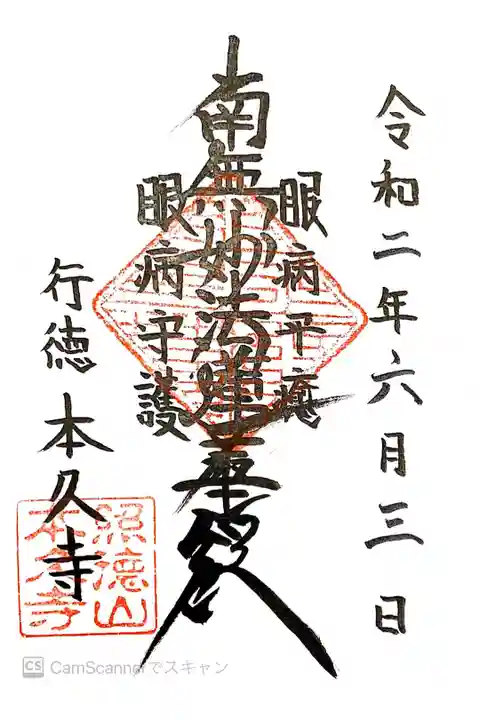 令和二年六月三日
眼病平癒
南無妙法蓮華経
眼病守護
行徳 本久寺
照徳山
本久寺
CS CamScannerでスキャン